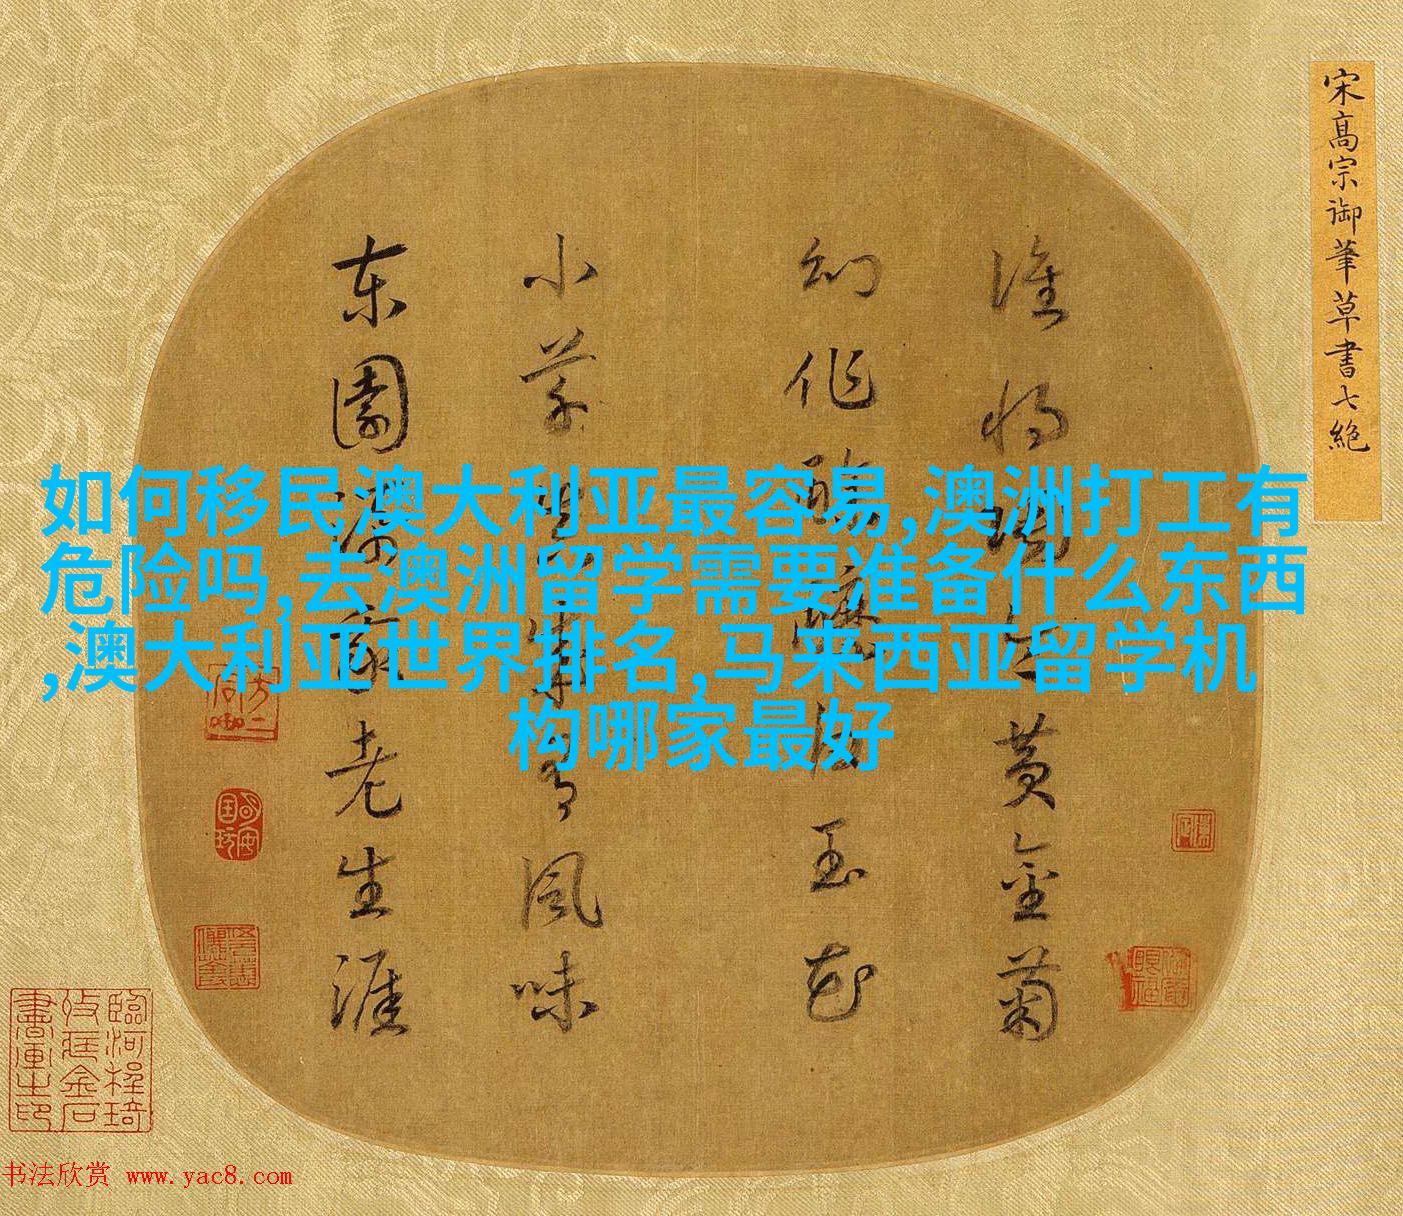 宋高宗御筆草書七絕
谁将陶令黄金菊
幻作酴醾白玉花
小草真成有风味
东园添我老生涯
如何移民澳大利亚最容易,澳洲打工有
危险吗,去澳洲留学需要准备什么东西
,澳大利亚世界排名,马来西亚留学机
构哪家最好
书法欣赏 www.yac8.com